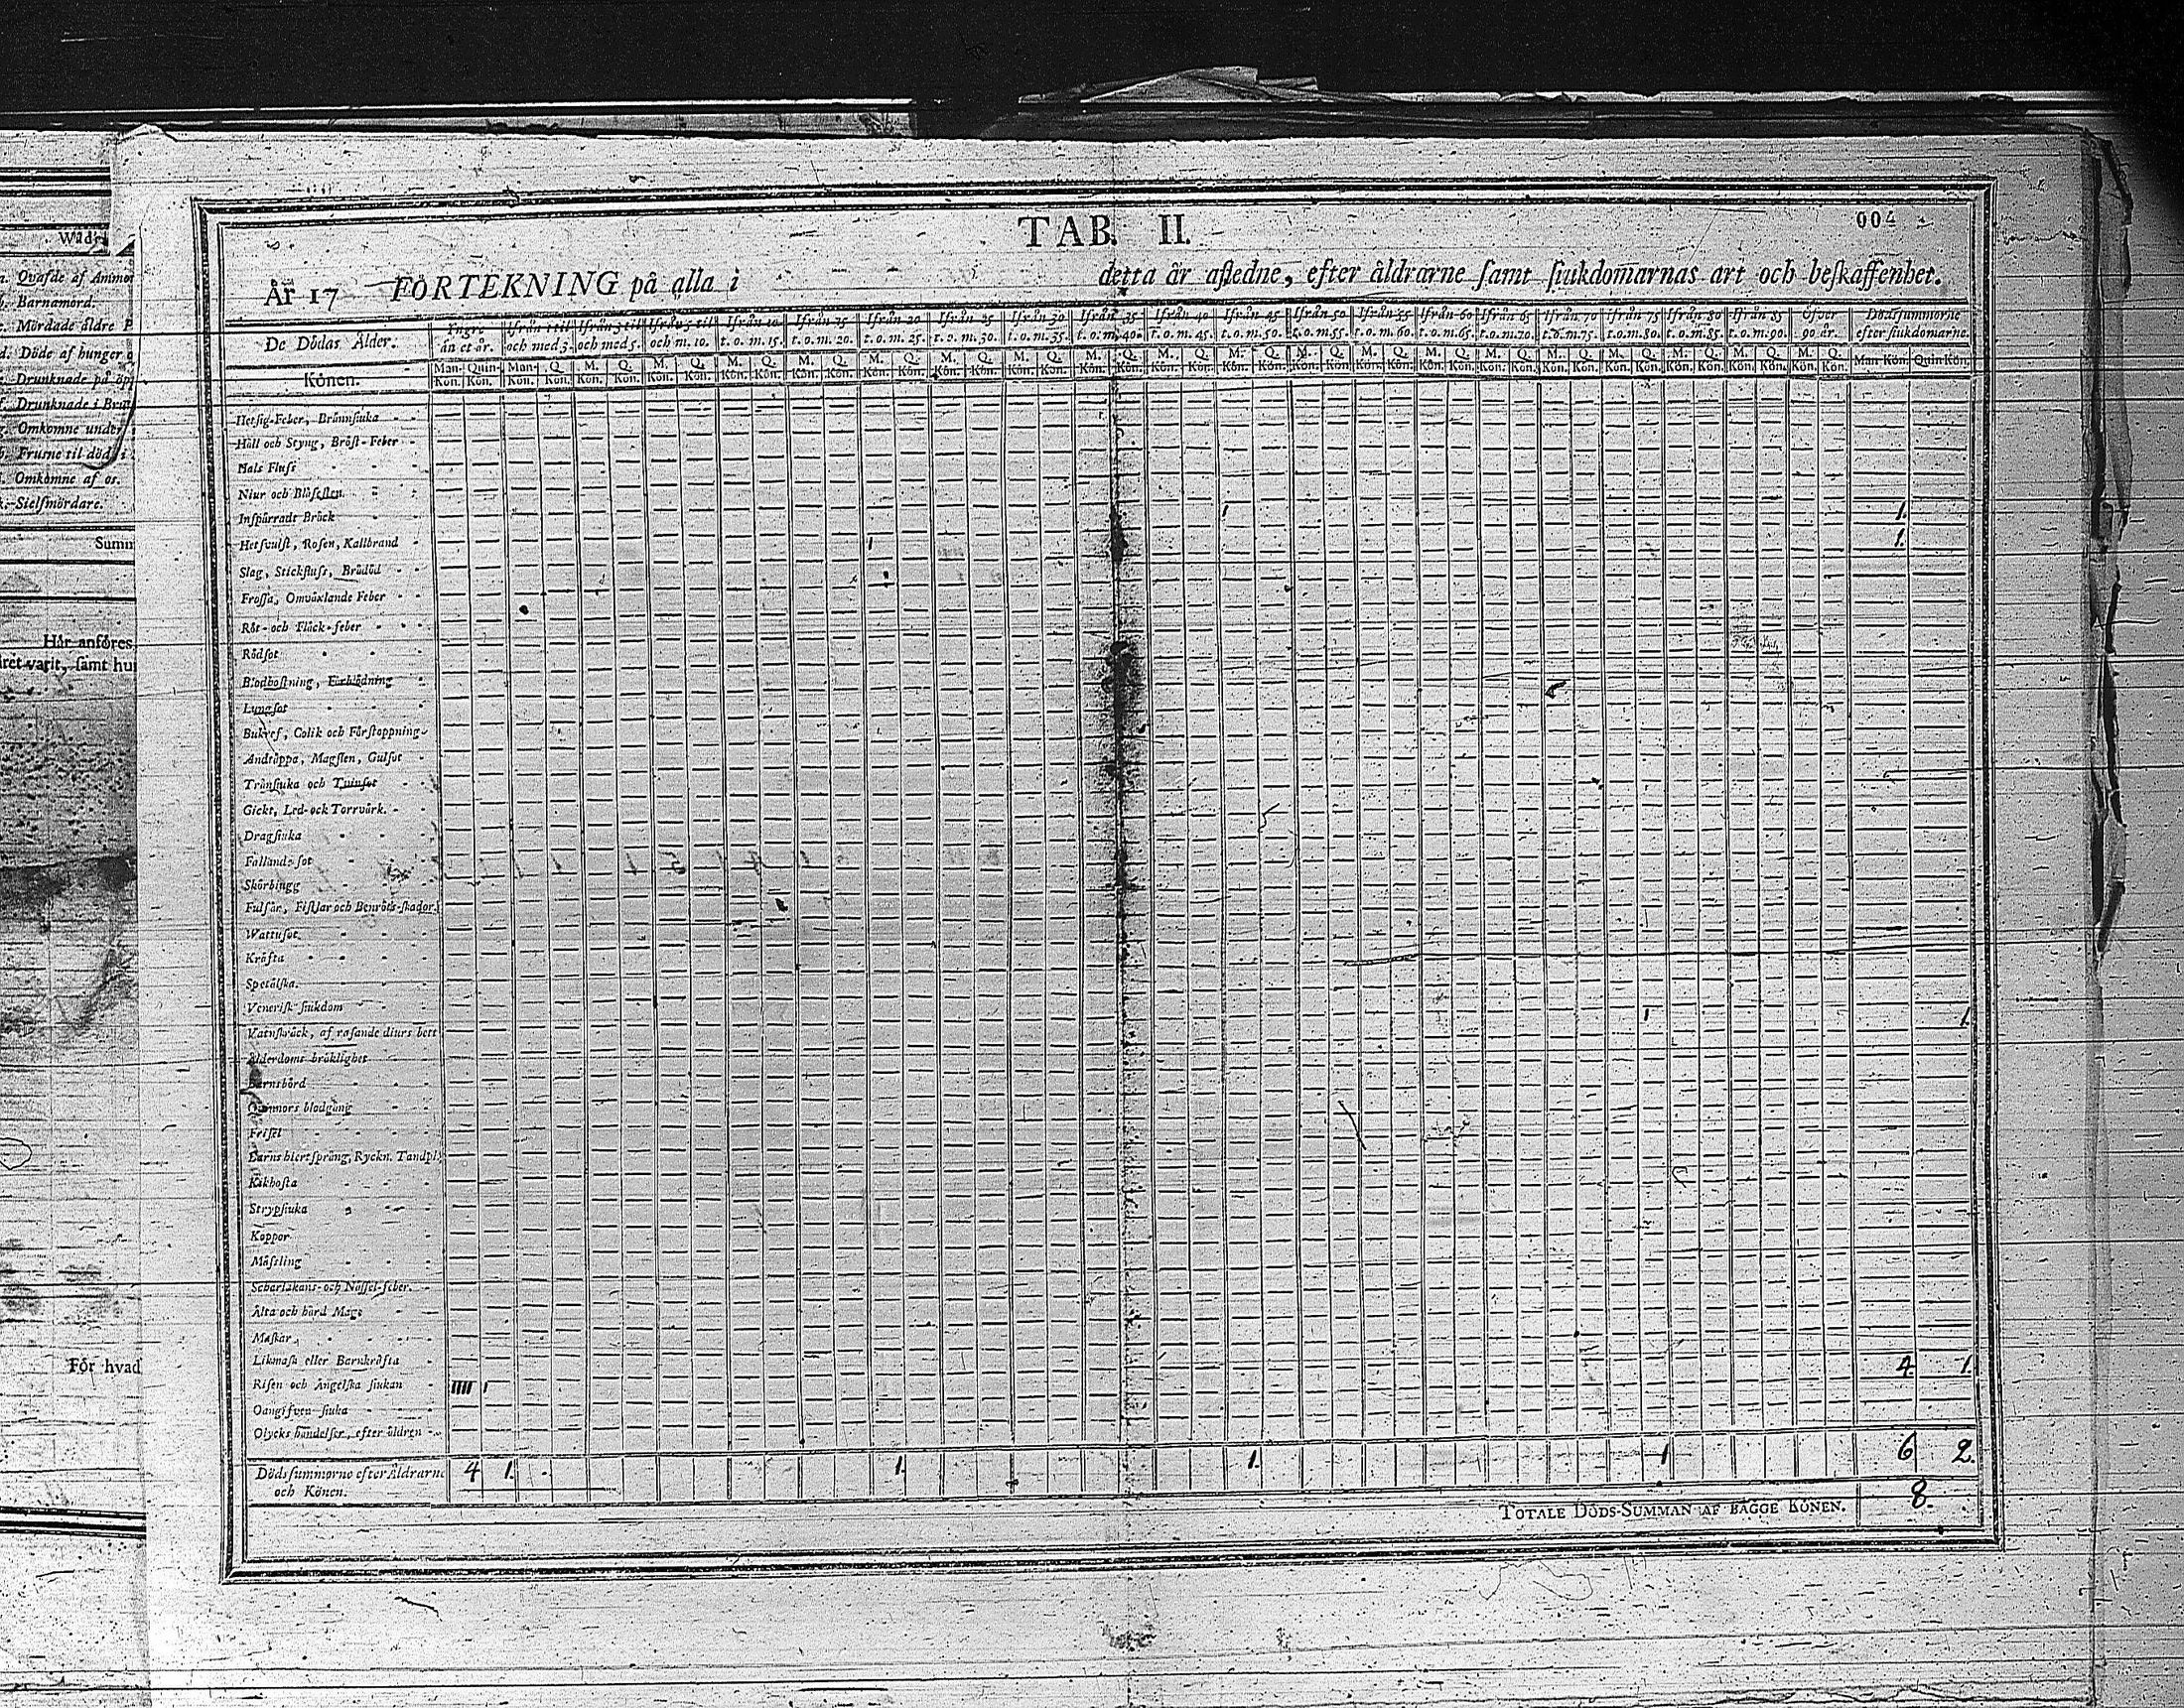 Wåd
a. Qvafde af Ammor
b. Barnamord.
c. Mördade äldre P
d. Döde af hunger o
e. Drunknade på öp
f. Drunknade i Bru
g. Omkomne under
h. Frusne til döds i
i. Omkomne af os.
k. Sielfmördare.
Summ
Hår anföres
året varit, samt hur
För hvad
004
TAB. II.
År 17 FÖRTEKNING på alla i detta år afledne, efter åldrarne samt siukdomarnas art och beskaffenhet.
De Dödas Ålder. Yngre än et år. Ifrån 1 til och med 3. Ifrån 3 til och med 5. Ifrån 5 til och m. 10. Ifrån 10 t. o. m. 15. Ifrån 15 t. o. m. 20. Ifrån 20 t. o. m. 25. Ifrån 25 t. o. m. 30. Ifrån 30 t. o. m. 35. Ifrån 35 t. o. m. 40. Ifrån 40 t. o. m. 45. Ifrån 45 t. o. m. 50. Ifrån 50 t. o. m. 55. Ifrån 55 t. o. m. 60. Ifrån 60 t. o. m. 65. Ifrån 65 t. o. m. 70. Ifrån 70 t. o. m. 75. Ifrån 75 t. o. m. 80. Ifrån 80 t. o. m. 85. Ifrån 85 t. o. m. 90. Öfver 90 år. Dödssummorne efter siukdomarne.
Könen. Man-Kön. Quin-Kön. Man-Kön. Q. Kön. M. Kön. Q. Kön. M. Kön. Q. Kön. M. Kön. Q. Kön. M. Kön. Q. Kön. M. Kön. Q. Kön. M. Kön. Q. Kön. M. Kön. Q. Kön. M. Kön. Q. Kön. M. Kön. Q. Kön. M. Kön. Q. Kön. M. Kön. Q. Kön. M. Kön. Q. Kön. M. Kön. Q. Kön. M. Kön. Q. Kön. M. Kön. Q. Kön. M. Kön. Q. Kön. M. Kön. Q. Kön. M. Kön. Q. Kön. M. Kön. Q. Kön. Man-Kön. Quin-Kön.
Hetsig-Feber, Brännsiuka
Håll och Styng, Bröst-Feber
Hals Fluss
Niur och Blåsesten
Inspärradt Bråck 1 1.
Hetsvulst, Rosen, Kallbrand 1 1.
Slag, Stickfluss, Brådöd
Frossa, Omväxlande Feber
Röt- och Fläck-feber
Rödsot
Blodhostning, Förblödning
Lungsot
Bukref, Colik och Förstoppning
Andtäppa, Magsten, Gulsot
Trånsiuka och Tvinsot
Gickt, Led-ock Torrvärk.
Dragsiuka
Fallande sot
Skörbiugg
Fulsår, Fistlar och Benröts-skador.
Wattusot
Kräfta
Spetälska.
Venerisk siukdom
Vatuskräck, af rasande diurs bett 1 1.
Ålderdoms bräklighet
Barnsbörd
Qvinnors blodgång
Frisel
Barns hiertsprång, Ryckn. Tandpl.
Kikhosta
Strypsiuka
Koppor
Måsling
Scharlakans- och Nässel-feber.
Älta och hård Mage
Maskar
Likmask eller Barnkräfta
Risen och Ängelska siukan IIII I 4. 1.
Oangifven siuka
Olycks händelser, efter åldren
Dödssummorne efter Åldrarne och Könen. 4 1. 1. 1. 1 6 2.
TOTALE DÖDS-SUMMAN AF BÅGGE KÖNEN. 8.